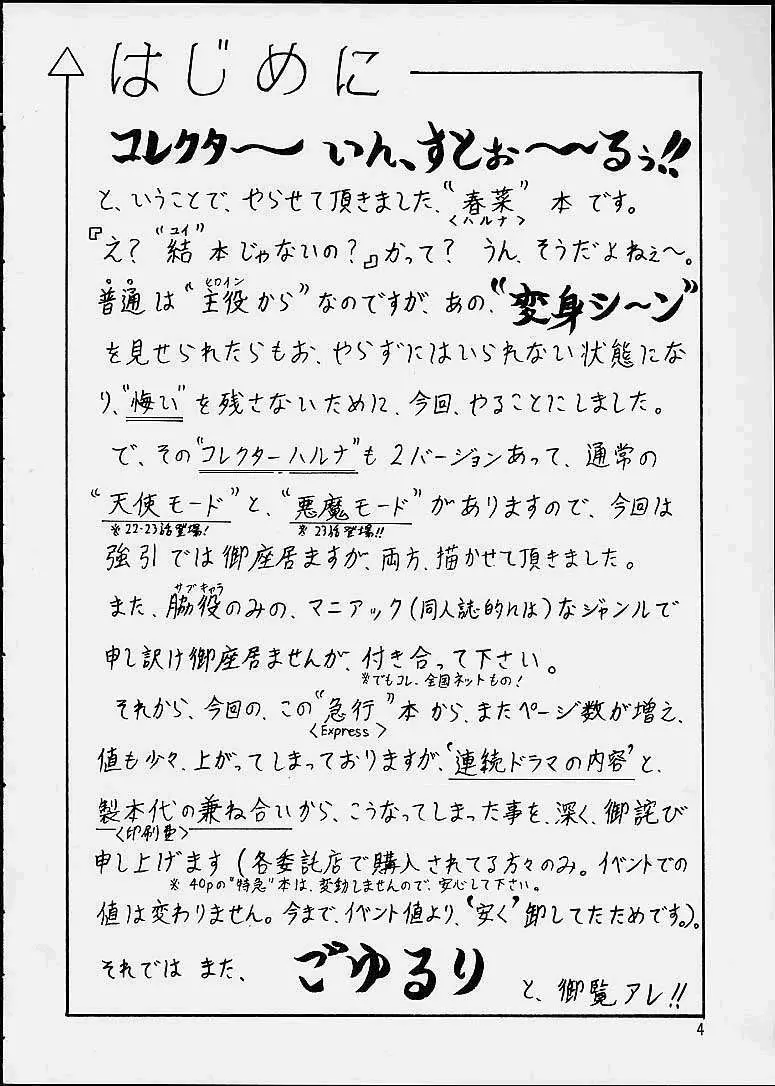 はじめに
コレクター〜 いん、すとぉ〜〜るぅ!!
と、いうことで、やらせて頂きました、“春菜” 本です。
<ハルナ>
ユイ
『え?“結”本じゃないの?』かって? うん、そうだよねぇ〜。
ヒロイン
普通は“主役から”なのですが、あの、“変身シ〜ン”
を見せられたらもお、やらずにはいられない状態にな
り、“悔い”を残さないために、今回、やることにしました。
で、その“コレクターハルナ”も2バージョンあって、通常の
“天使モード”と、“悪魔モード”がありますので、今回は
※22・23話登場! ※23話登場!!
強引では御座居ますが、両方、描かせて頂きました。
サブキャラ
また、脇役のみの、マニアック(同人誌的には)なジャンルで
申し訳け御座居ませんが、付き合って下さい。
※でもコレ、全国ネットもの!
それから、今回の、この“急行”本から、またページ数が増え、
<Express>
値も少々、上がってしまっておりますが、‘連続ドラマの内容’と、
製本代の兼ね合いから、こうなってしまった事を、深く、御詫び
<印刷費>
申し上げます(各委託店で購入されてる方々のみ。イベントでの
※40pの“特急”本は、変動しませんので、安心して下さい。
値は変わりません。今まで、イベント値より、‘安く’卸してたためです。)。
それでは また、 ごゆるり と、御覧アレ!!
4